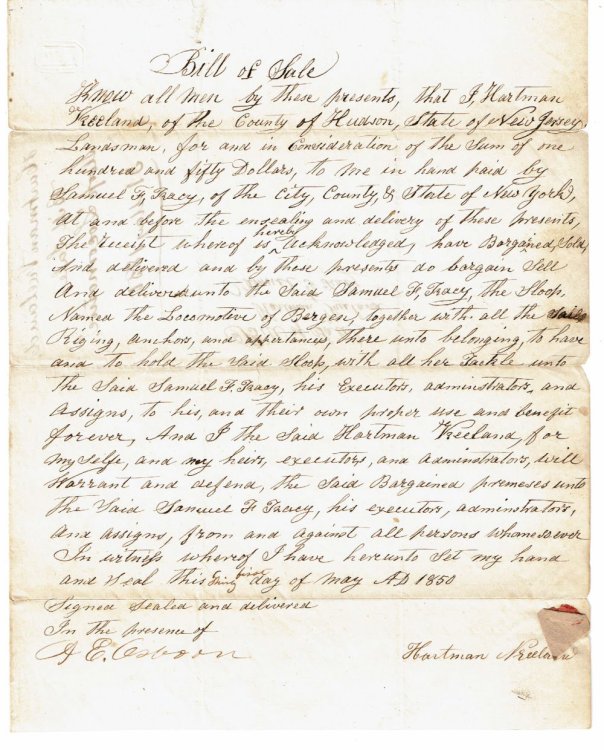 Bill of Sale
Know all men by these presents, that I, Hartman
Vreeland, of the County of Hudson, State of New Jersey,
Landsman, for and in Consideration of the Sum of one
hundred and fifty Dollars, to me in hand paid by
Samuel F, Tracy, of the City, County, & State of New York,
At and before the ensealing and delivery of these presents,
The receipt whereof is hereby Acknowledged, have Bargained, Sold,
And delivered and by these presents do bargain Sell
And deliver unto the Said Samuel F, Tracy, the Sloop,
Named the Locomotive of Bergen, together with all the Sails
Riging, anchors, and appertances, there unto belonging, to have
and to hold the Said Sloop, with all her Tackle unto
the Said Samuel F. Tracy, his Executors, adminstrators, and
Assigns, to his, and their own proper use and benefit
forever, And I the Said Hartman Vreeland, for
my Selfe, and my heirs, executors, and Adminstrators, will
Warrant and defend, the Said Bargained premeses unto
the Said Samuel F Tracy, his executors, adminstrators,
And assigns, from and against all persons whomesoever
In witness whereof I have hereunto Set my hand
and Seal this thirty first day of May AD 1850
Signed Sealed and delivered
In the presence of
E. Osborn
Hartman Vreeland